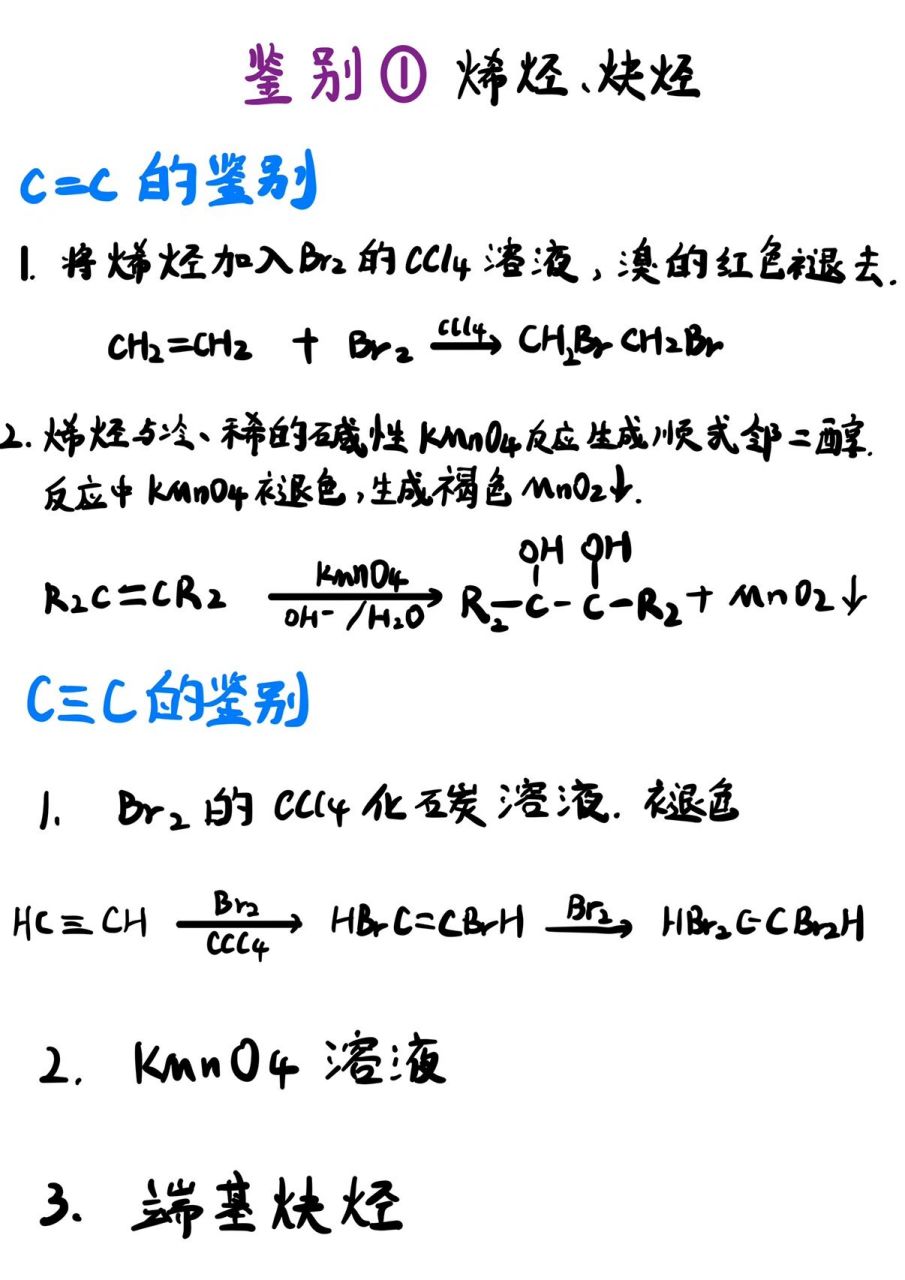 鉴别① 烯烃、炔烃
C=C 的鉴别
1. 将烯烃加入Br₂的CCl₄溶液，溴的红色褪去.
CH₂=CH₂ + Br₂ —CCl₄→ CH₂BrCH₂Br
2. 烯烃与冷、稀的碱性KMnO₄反应生成顺式邻二醇.
反应中KMnO₄褪色，生成褐色MnO₂↓.
OH OH
R₂C=CR₂ —KMnO₄ / OH⁻/H₂O→ R₂-C-C-R₂ + MnO₂↓
C≡C的鉴别
1. Br₂的CCl₄化碳溶液. 褪色
HC≡CH —Br₂ / CCl₄→ HBrC=CBrH —Br₂→ HBr₂C-CBr₂H
2. KMnO₄ 溶液
3. 端基炔烃